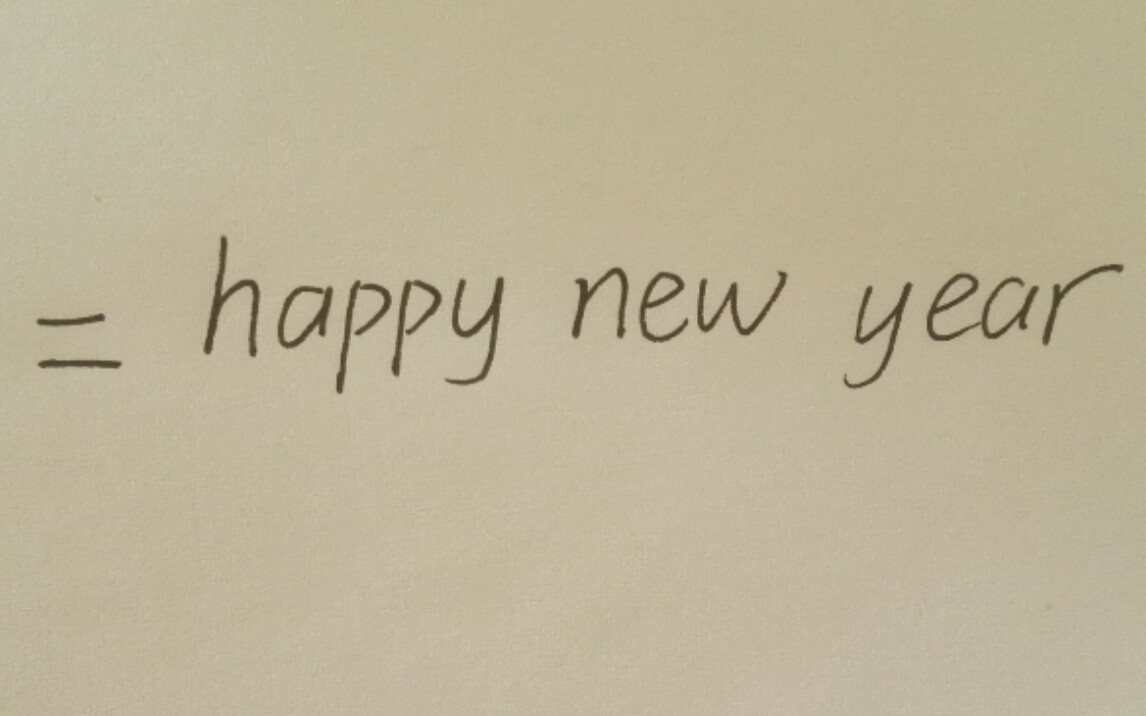 = happy new year